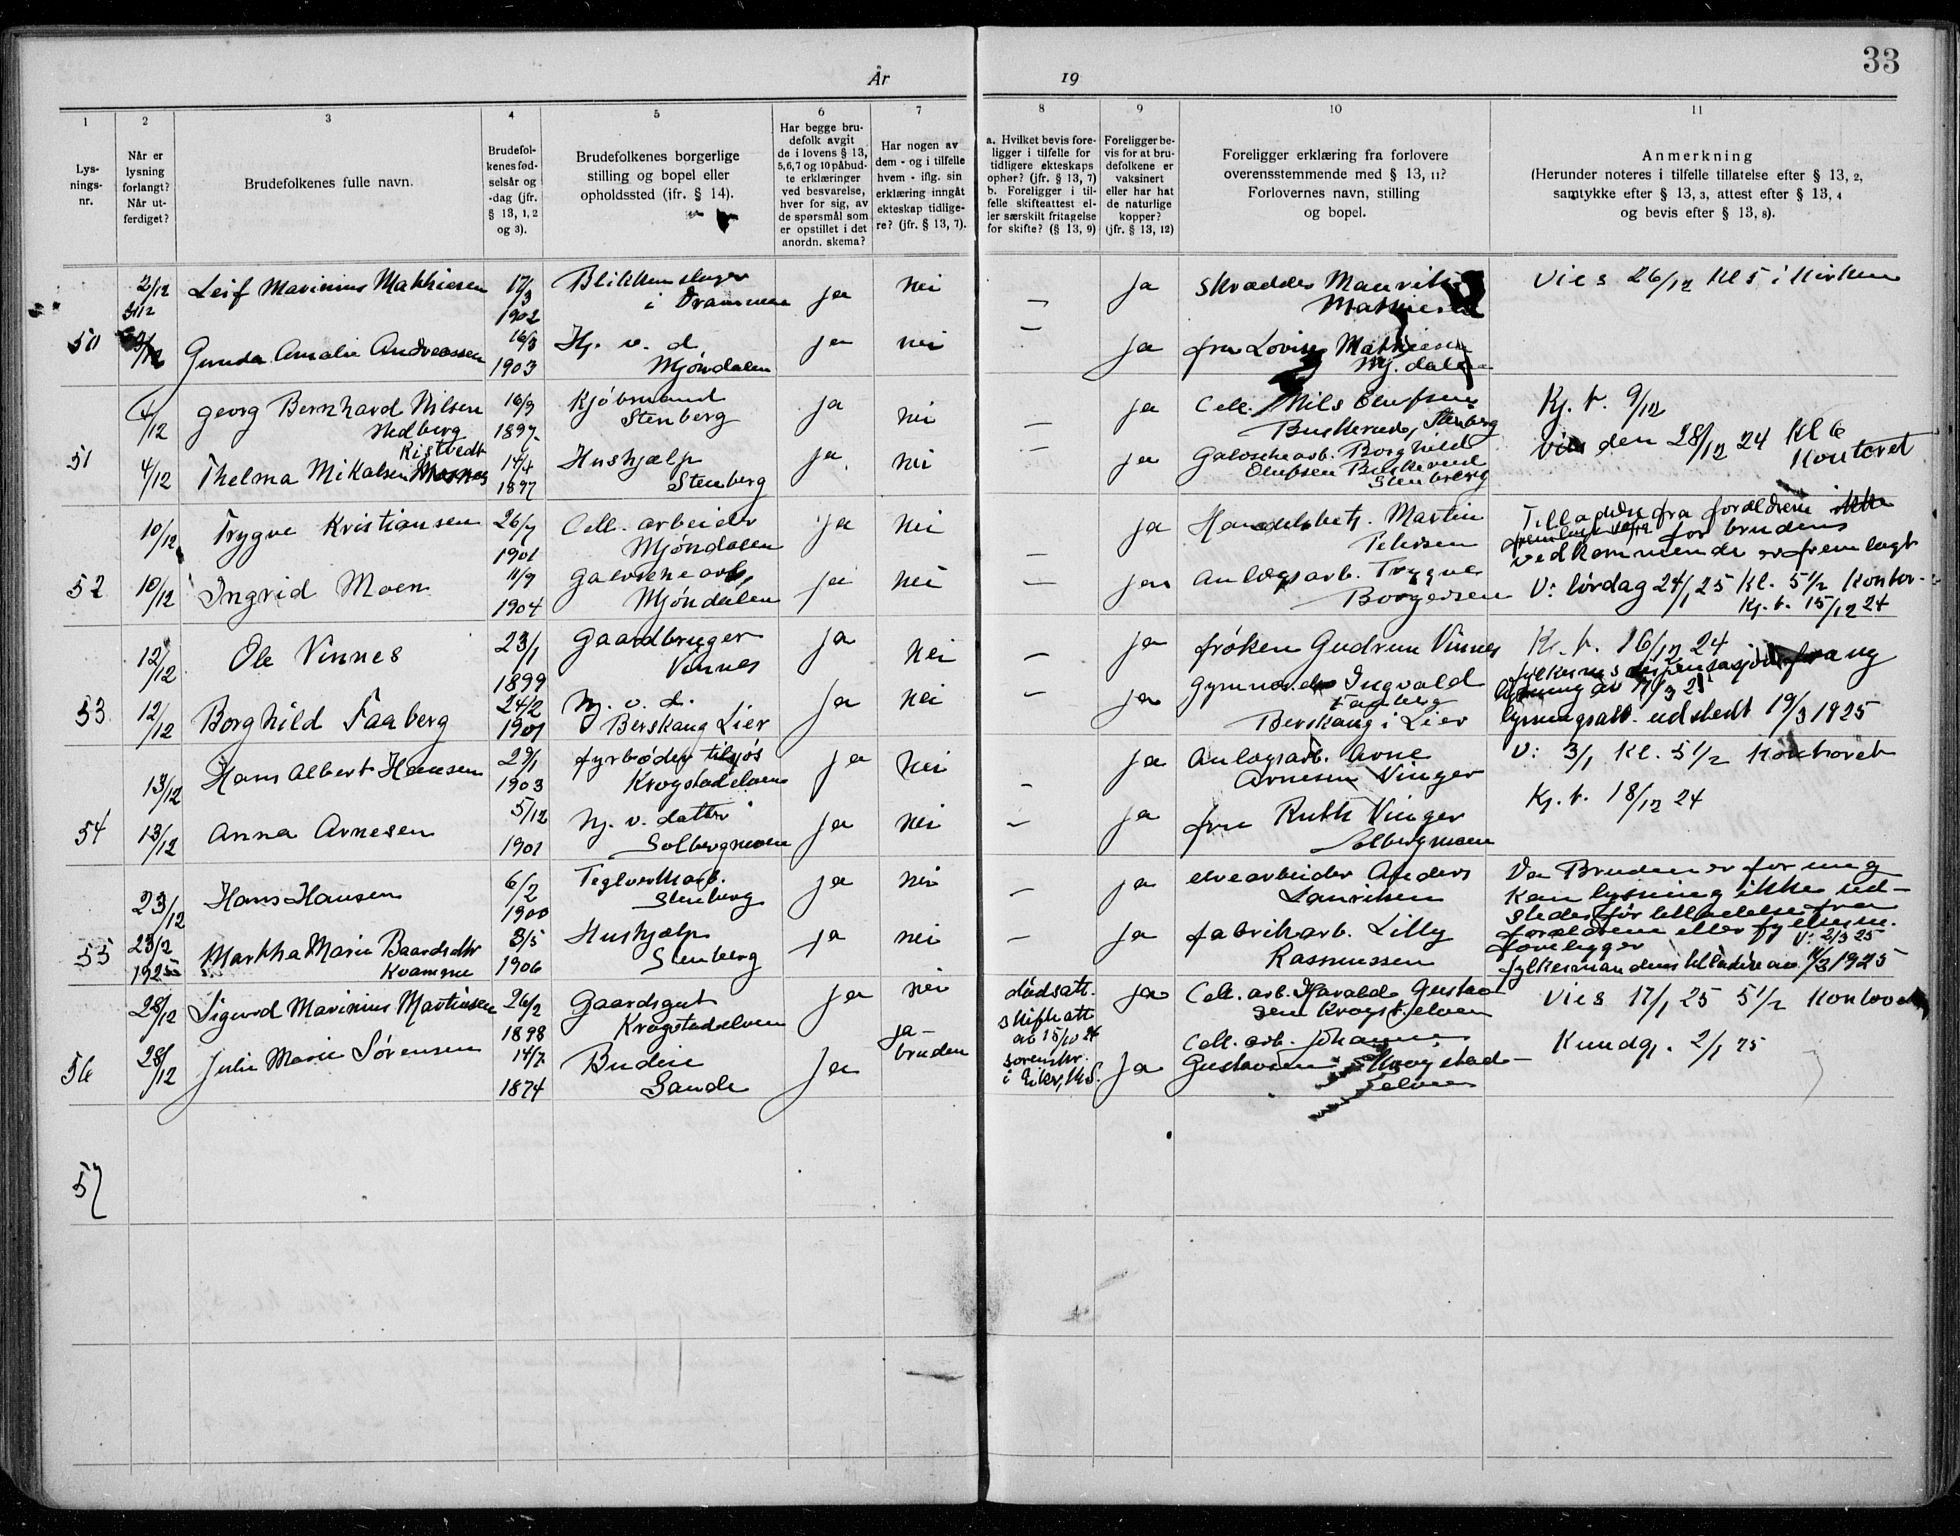 33
År
19
1 2 3 4 5 6 7 8 9 10 11
Lys-
nings-
nr.
Når er
lysning
forlangt?
Når ut-
ferdiget?
Brudefolkenes fulle navn.
Brudefol-
kenes fød-
selsår og
-dag (jfr.
§ 13, 1, 2
og 3).
Brudefolkenes borgerlige
stilling og bopel eller
opholdssted (ifr. § 14).
Har begge bru-
defolk avgit
de i lovens § 13,
5,6,7 og 10 påbud-
te erklæringer
ved besvarelse,
hver for sig, av
de spørsmål som
er opstillet i det
anordn. skema?
Har nogen av
dem - og i tilfelle
hvem - iflg. sin
erklæring inngått
ekteskap tidlige-
re? (jfr. § 13, 7).
a. Hvilket bevis fore-
ligger i tilfelle for
tidligere ekteskaps
ophør? (jfr. § 13, 7)
b. Foreligger i til-
felle skifteattest el-
ler særskilt fritagelse
for skifte? (§ 13, 9)
Foreligger be-
vis for at bru-
defolkene er
vaksinert
eller har hat
de naturlige
kopper?
(jfr. § 13, 12)
Foreligger erklæring fra forlovere
overensstemmende med § 13, 11?
Forlovernes navn, stilling
og bopel.
Anmerkning
(Herunder noteres i tilfelle tillatelse efter § 13, 2,
samtykke efter § 13, 3, attest efter § 13, 4
og bevis efter § 13, 8).
50
2/12
Leif Marinius Mathiesen
17/3
1902
Blikkenslager
i Drammen
ja
nei
—
ja
Skrædder Maurits
Mathiesen
Vies 26/12 Kl 5 i Kirken
Gunda Amalie Andreassen
16/3
1903
Hj. v. d.
Mjøndalen
ja
nei
—
ja
fru Lovise Mathiesen
Mj.dalen
51
4/12
Georg Bernhard Nilsen
Hedberg
16/9
1897
Kjøbmand
Stenberg
ja
nei
—
ja
Cell. Nils Olufsen
Buskerud, Stenberg
Kj. t. 9/12
Vies den 28/12 24 Kl 6
Kontoret
4/12
Ristvedt
Thelma Mikalsen
14/4
1897
Hushjælp
Stenberg
ja
nei
—
ja
Galoschearb. Borghild
Olufsen Buskerud
Stenberg
52
10/12
Trygve Kristiansen
26/7
1901
Cell. arbeider
Mjøndalen
ja
nei
—
ja
Handelsbetj. Martin
Petersen
Tilladelse fra forældrene ikke
for brudens
vedkommende er fremlagt
10/12
Ingrid Moen
11/9
1904
Galoschearb.
Mjøndalen
ja
nei
—
ja
Anlægsarb. Trygve
Borgersen
V: lørdag 24/1 25 Kl. 5 1/2 Kontor-
Kj. t. 15/12 24
53
12/12
Ole Vinnes
23/1
1899
Gaardbruger
Vinnes
ja
nei
—
ja
frøken Gudrun Vinnes
Kj. t. 16/12 24
fylkesms dispensasjon fra ny
lysning av 17/3 25
12/12
Borghild Faaberg
24/2
1901
hj. v. d.
Berskaug Lier
ja
nei
—
ja
Ingvald
Faaberg
Berskaug i Lier
lysningsatt. udstedt 19/3 1925
54
13/12
Hans Albert Hansen
29/1
1903
fyrbøder tilsjøs
Krogstadelven
ja
nei
—
ja
Anlægsarb. Arne
Arnesen Vinger
V: 3/1 Kl. 5 1/2 Kontoret
13/12
Anna Arnesen
5/12
1901
hj. v. datter
Solbergmoen
ja
nei
—
ja
fru Ruth Vinger
Solbergmoen
Kj. t. 18/12 24
55
23/12
Hans Hansen
6/2
1900
Teglverksarb.
Stenberg
ja
nei
—
ja
elvearbeider Anders
Lauritsen
Da Bruden er for ung
kan lysning ikke ud-
stedes før tilladelse fra
forældrene eller fylkesm.
foreligger V: 2/3 25
23/2
1925
Martha Marie Baardsdtr
Kvamme
3/5
1906
Hushjælp
Stenberg
ja
nei
—
ja
fabrikarb. Lilly
Rasmussen
fylkesmandens tilladelse av /3 1925
56
28/12
Sigurd Marinius Martinsen
26/2
1898
Gaardsgut
Krogstadelven
ja
nei
dødsatt.
skifteatt
av 15/10 24
sorenskr.
i Eiker, M.S.
ja
Cell. arb. Harald Gustav-
sen Krogst.elven
Vies 17/1 25 5 1/2 Kontoret
28/12
Julie Marie Sørensen
14/7
1874
Budeie
Sande
ja
ja-
bruden
ja
Cell. arb. Johannes
Gustavsen Krogstad-
elven
Kundgj. 2/1 25
57